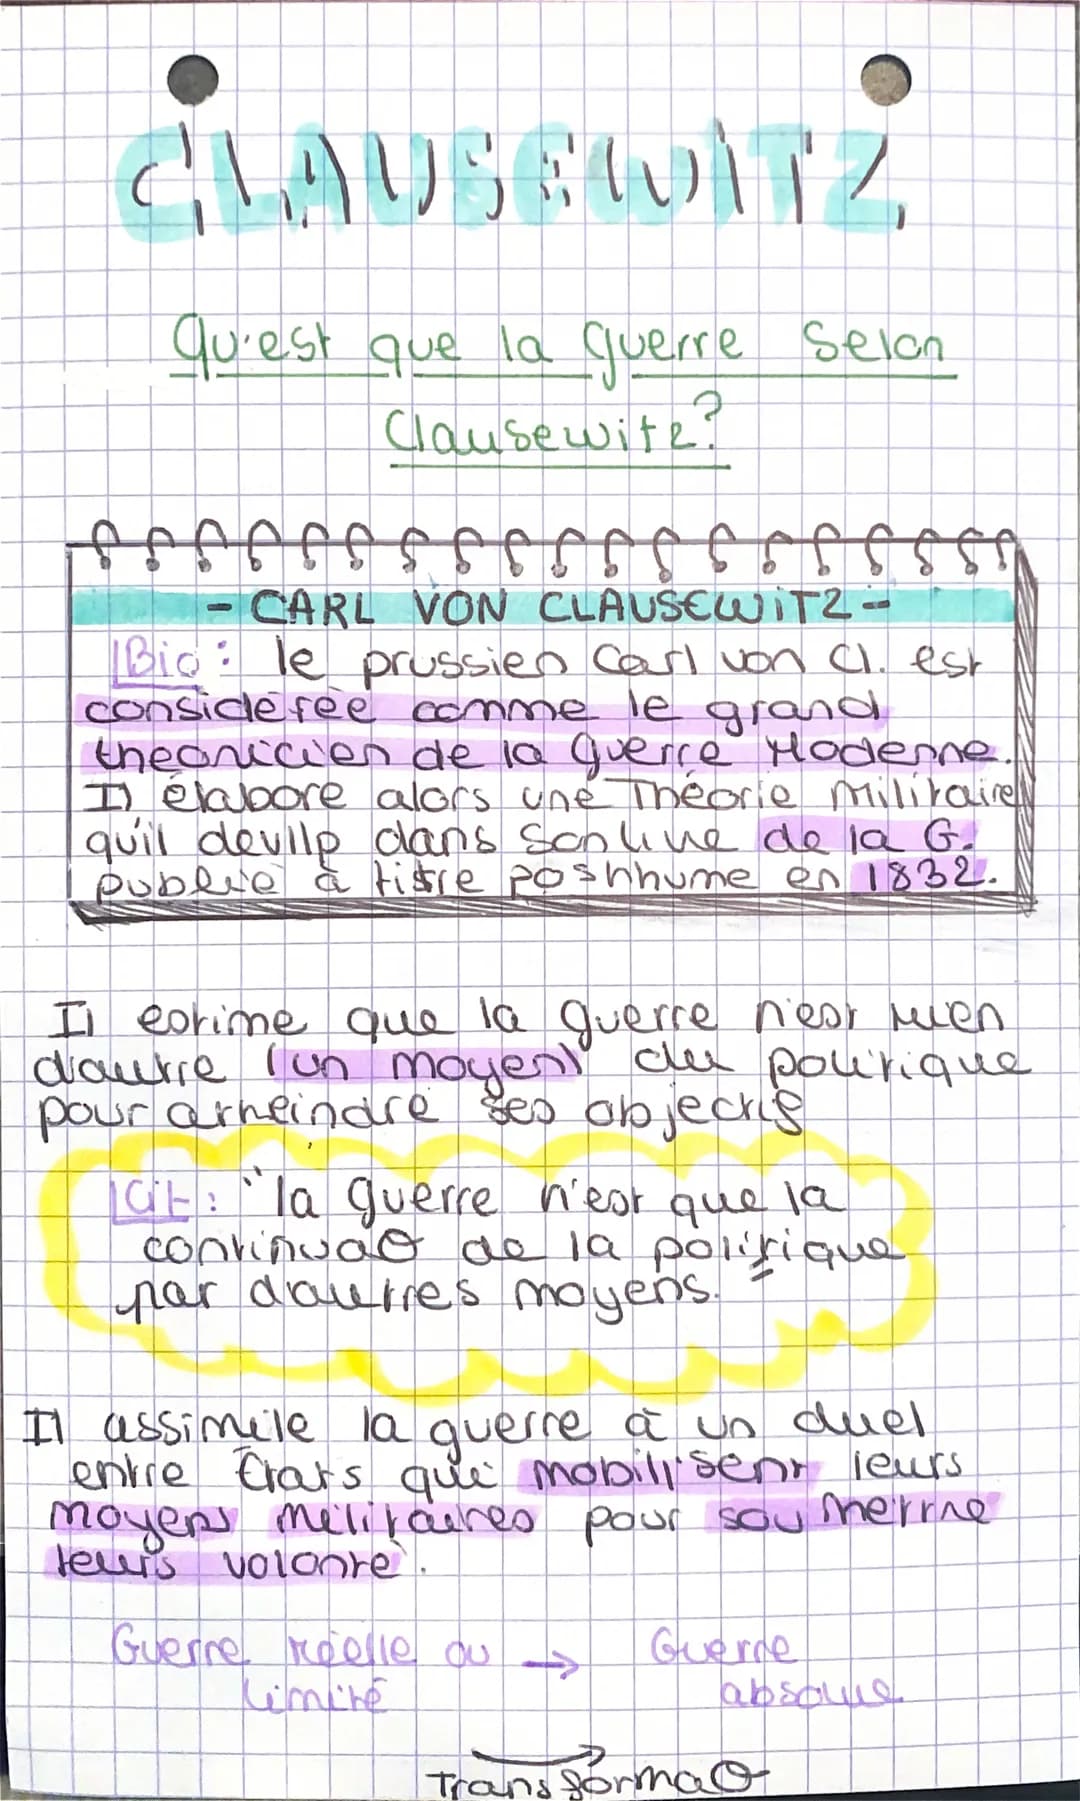 CLAUSEWITZ
Qu'est que la guerre selon
Clausewitz?
- CARL VON CLAUSEWITZ -
Bio: le prussien Carl von Cl. est
considérée comme le grand
théoricien de la guerre Moderne.
Il élabore alors une Théorie militaire
qu'il devllp dans son livre de la G.
publié à titre poshhume en 1832.
Il estime que la guerre n'est rien
d'autre (un moyen) du politique
pour atteindre ses objectifs
Cit: "la guerre n'est que la
continuaO de la politique
par d'autres moyens."
Il assimile la guerre à un duel
entre États qui mobilisent leurs
moyens militaires pour soumettre
leurs volonté.
Guerre réelle ou → Guerre
limité absolue
TransformaO